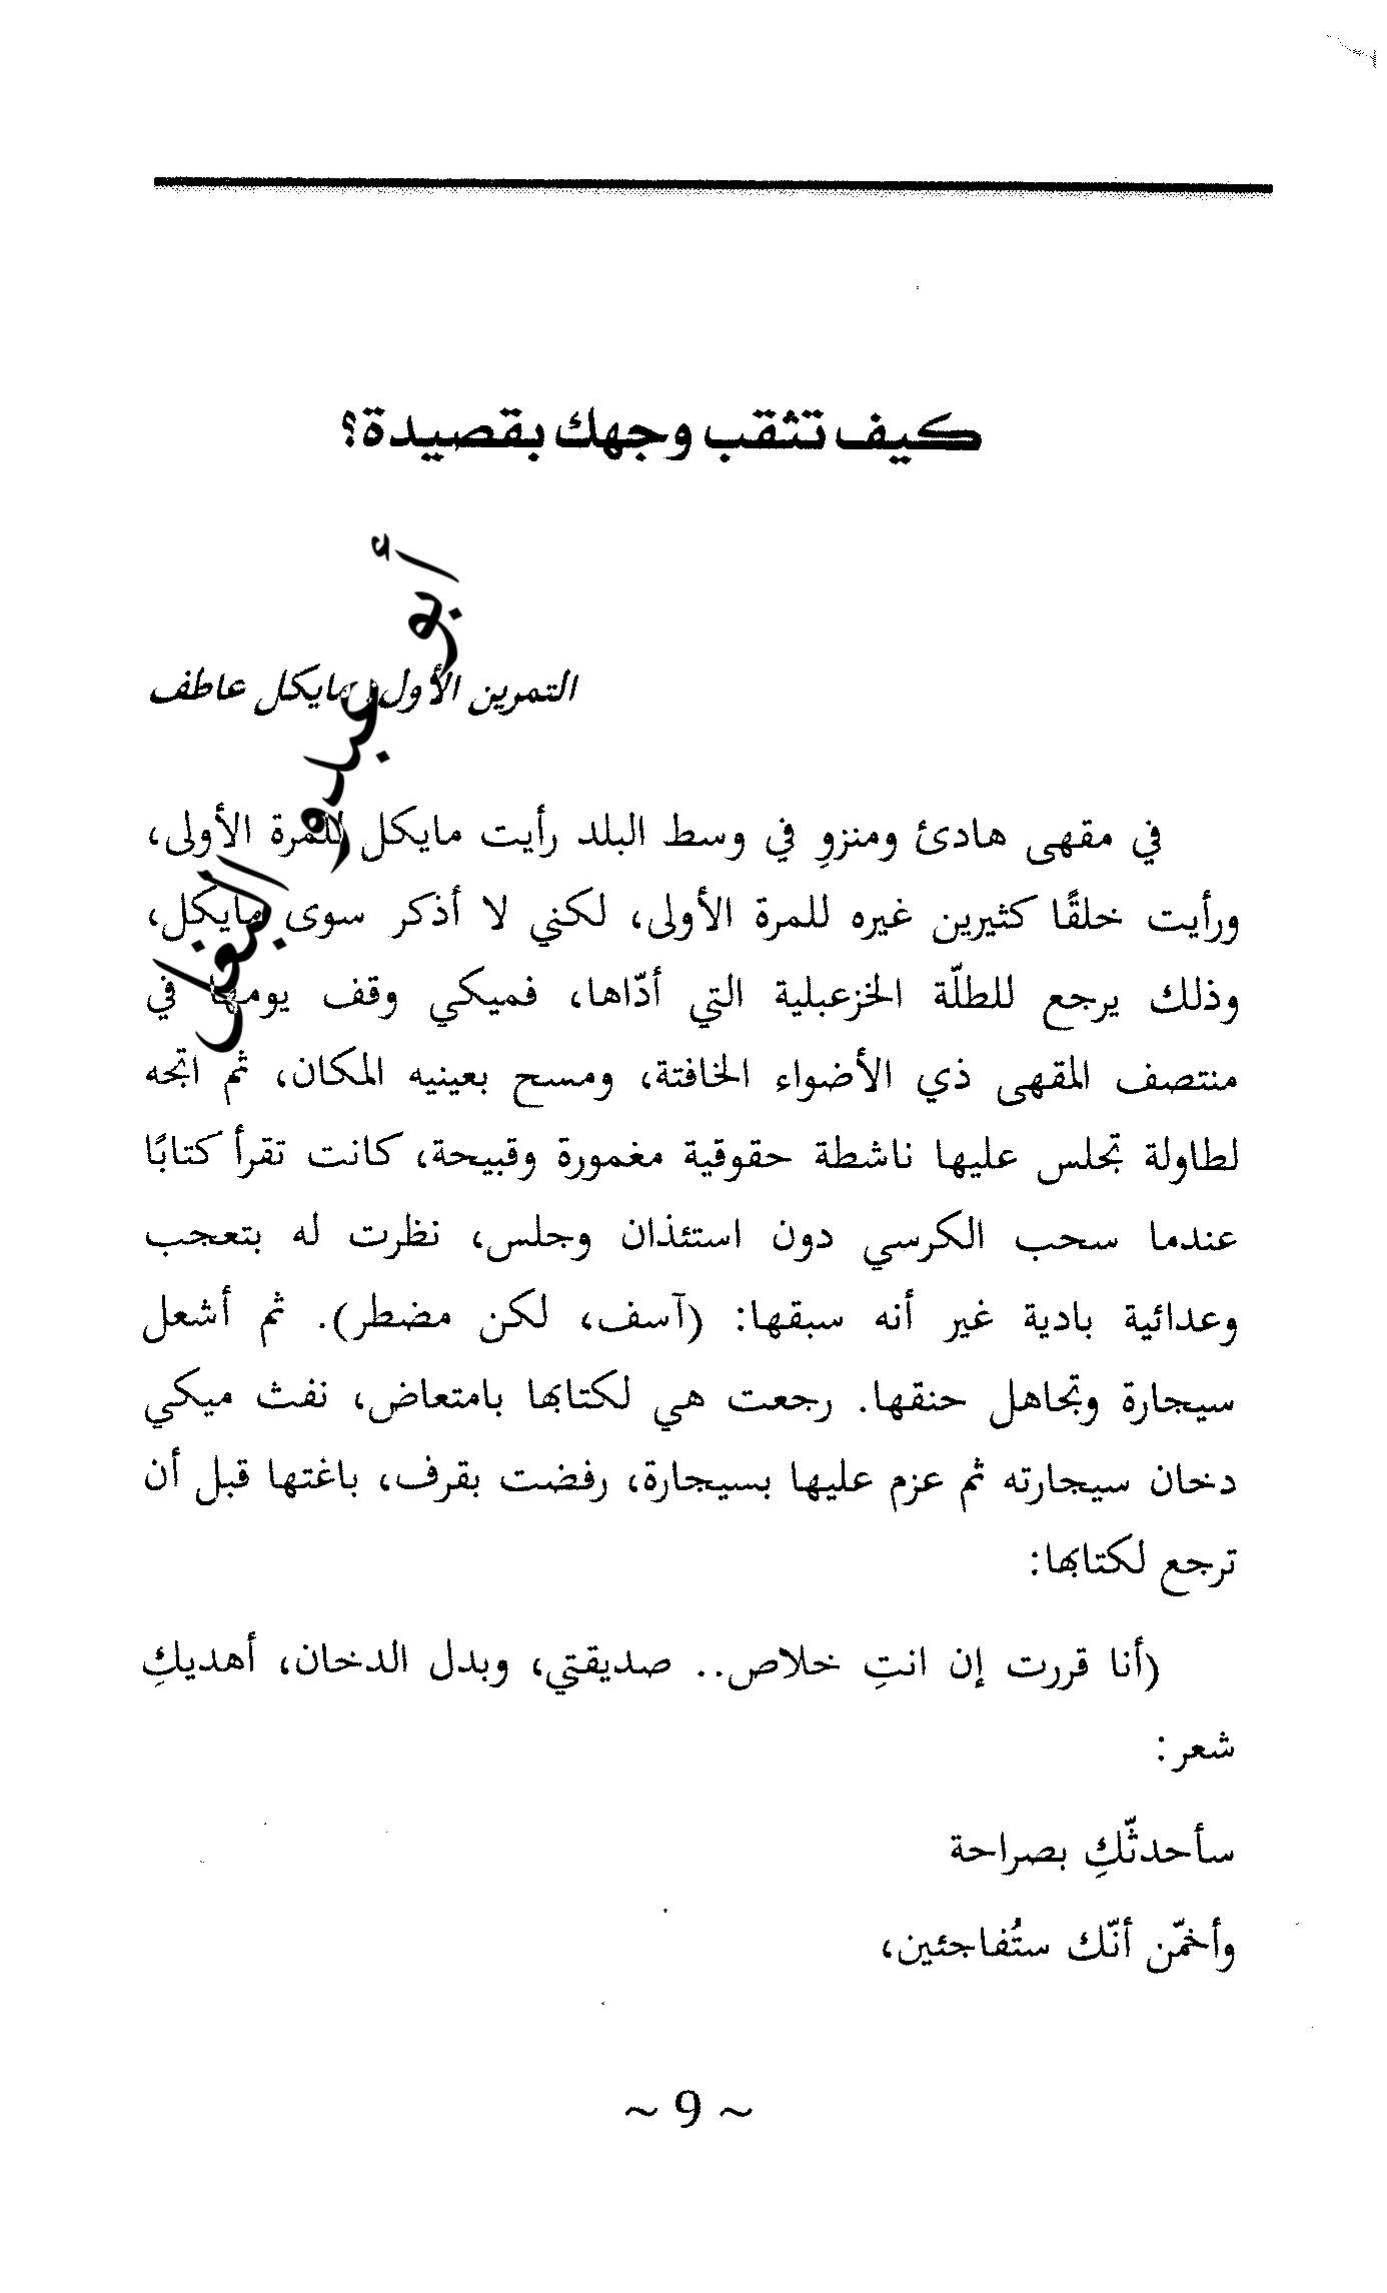 كيف تثقب وجهك بقصيدة؟
أبو عبدو البغل
التمرين الأول: مايكل عاطف
في مقهى هادئ ومنزوِ في وسط البلد رأيت مايكل للمرة الأولى،
ورأيت خلقًا كثيرين غيره للمرة الأولى، لكني لا أذكر سوى مايكل،
وذلك يرجع للطلّة الخزعبلية التي أدّاها، فميكي وقف يومها في
منتصف المقهى ذي الأضواء الخافتة، ومسح بعينيه المكان، ثم اتجه
لطاولة تجلس عليها ناشطة حقوقية مغمورة وقبيحة، كانت تقرأ كتابًا
عندما سحب الكرسي دون استئذان وجلس، نظرت له بتعجب
وعدائية بادية غير أنه سبقها: (آسف، لكن مضطر). ثم أشعل
سيجارة وتجاهل حنقها. رجعت هي لكتابها بامتعاض، نفث ميكي
دخان سيجارته ثم عزم عليها بسيجارة، رفضت بقرف، باغتها قبل أن
ترجع لكتابها:
(أنا قررت إن انتِ خلاص.. صديقتي، وبدل الدخان، أهديكِ
شعر:
سأحدثّكِ بصراحة
وأخمّن أنّك ستُفاجئين،
~ 9 ~